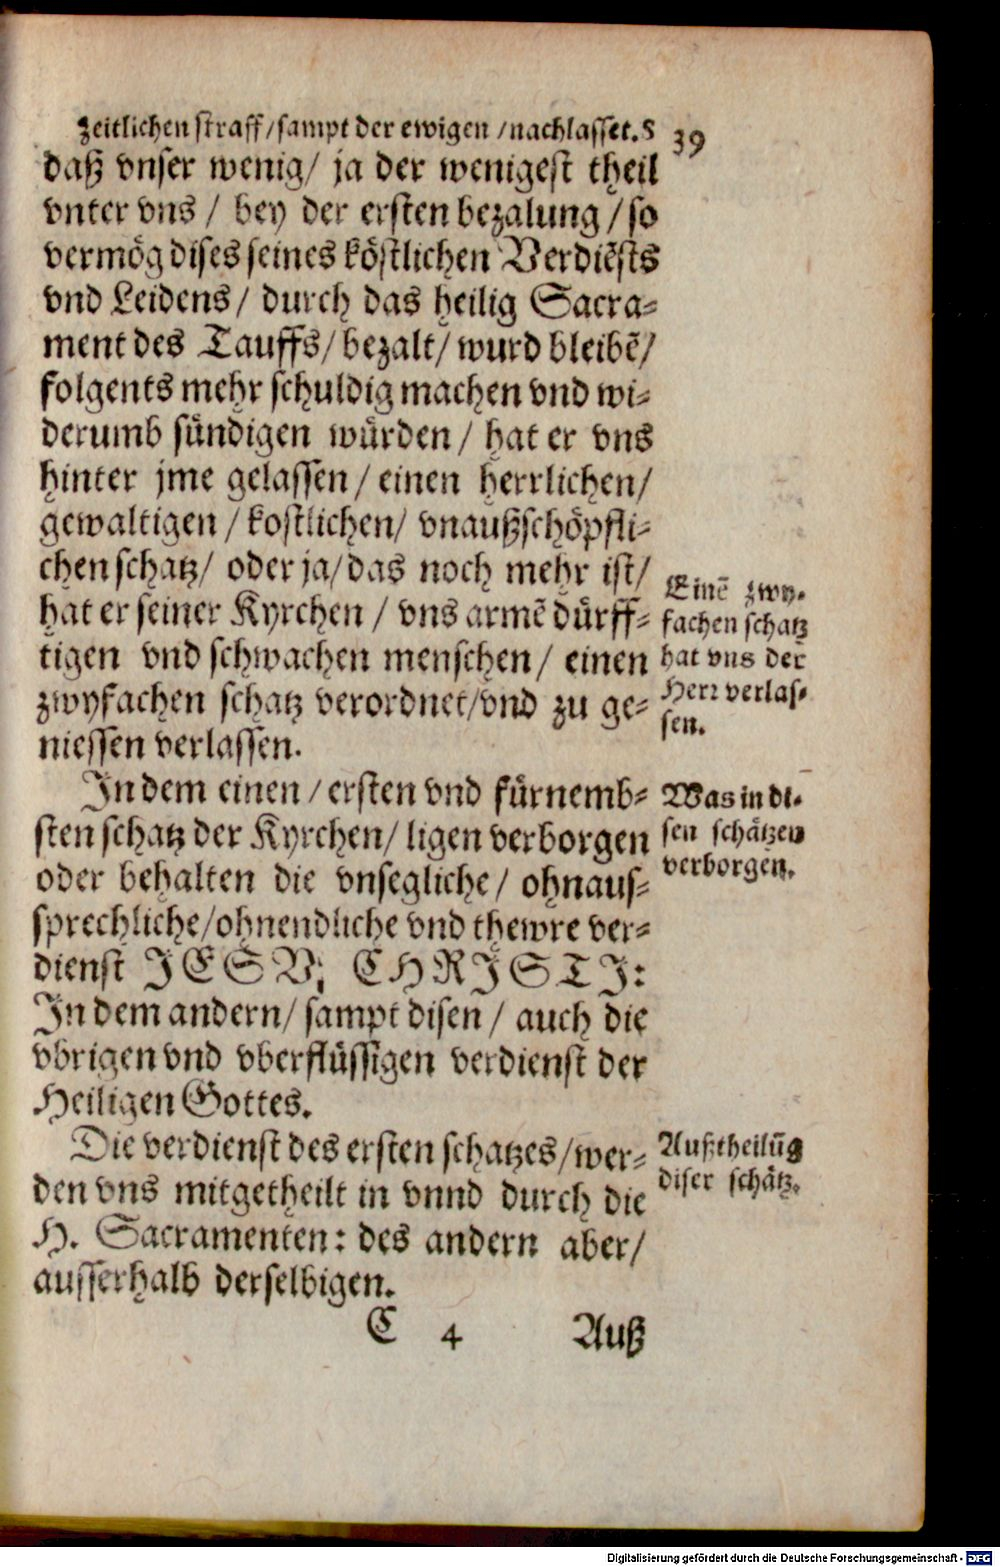 zeitlichen straff/sampt der ewigen /nachlasset. S 39
daß vnser wenig/ ja der wenigest theil
vnter vns / bey der ersten bezalung /so
vermög dises seines köstlichen Verdiẽsts
vnd Leidens/ durch das heilig Sacra-
ment des Tauffs/bezalt/wurd bleibẽ/
folgents mehr schuldig machen vnd wi-
derumb sündigen würden/ hat er vns
hinter jme gelassen/ einen herrlichen/
gewaltigen /kostlichen/ vnaußschöpfli-
chen schatz/ oder ja/das noch mehr ist/
hat er seiner Kyrchen / vns armẽ dürff-
tigen vnd schwachen menschen/ einen
zwyfachen schatz verordnet/vnd zu ge-
niessen verlassen.
Einẽ zwy-
fachen schatz
hat vns der
Herr verlas-
sen.
In dem einen /ersten vnd fürnemb-
sten schatz der Kyrchen/ ligen verborgen
oder behalten die vnsegliche/ ohnaus-
sprechliche/ohnendliche vnd thewre ver-
dienst JESV, CHRJSTJ:
In dem andern/ sampt disen / auch die
vbrigen vnd vberflüssigen verdienst der
Heiligen Gottes.
Was in di-
sen schätzen
verborgen.
Die verdienst des ersten schatzes/wer-
den vns mitgetheilt in vnnd durch die
H. Sacramenten: des andern aber/
ausserhalb derselbigen.
Außtheilũg
diser schätz.
C 4 Auß
Digitalisierung gefördert durch die Deutsche Forschungsgemeinschaft - DFG